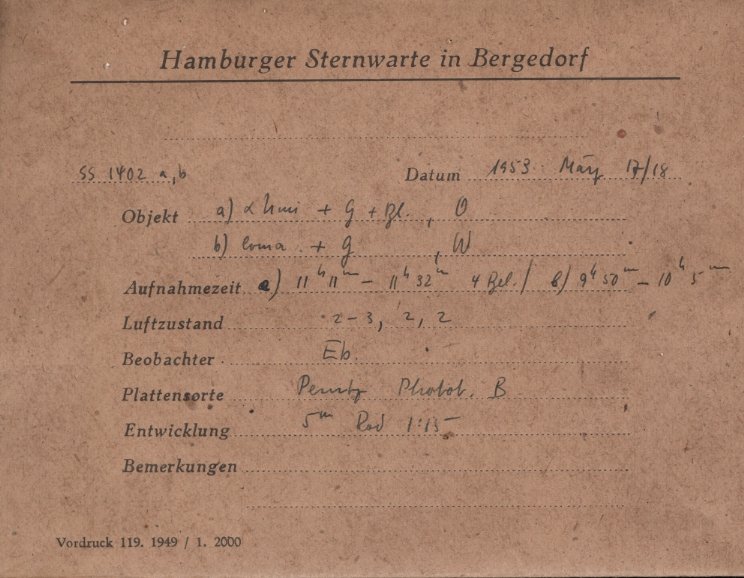 Hamburger Sternwarte in Bergedorf
SS 1402 a,b Datum 1953 März 17/18
Objekt a) α Umi + G + Bl., O
b) Coma + G , W
Aufnahmezeit a) 11ʰ 11ᵐ – 11ʰ 32ᵐ 4 Bel./ b) 9ʰ 50ᵐ – 10ʰ 5ᵐ
Luftzustand 2–3, 2, 2
Beobachter Eb.
Plattensorte Perutz Photot. B
Entwicklung 5ᵐ Rod 1:15
Bemerkungen
Vordruck 119. 1949 / 1. 2000